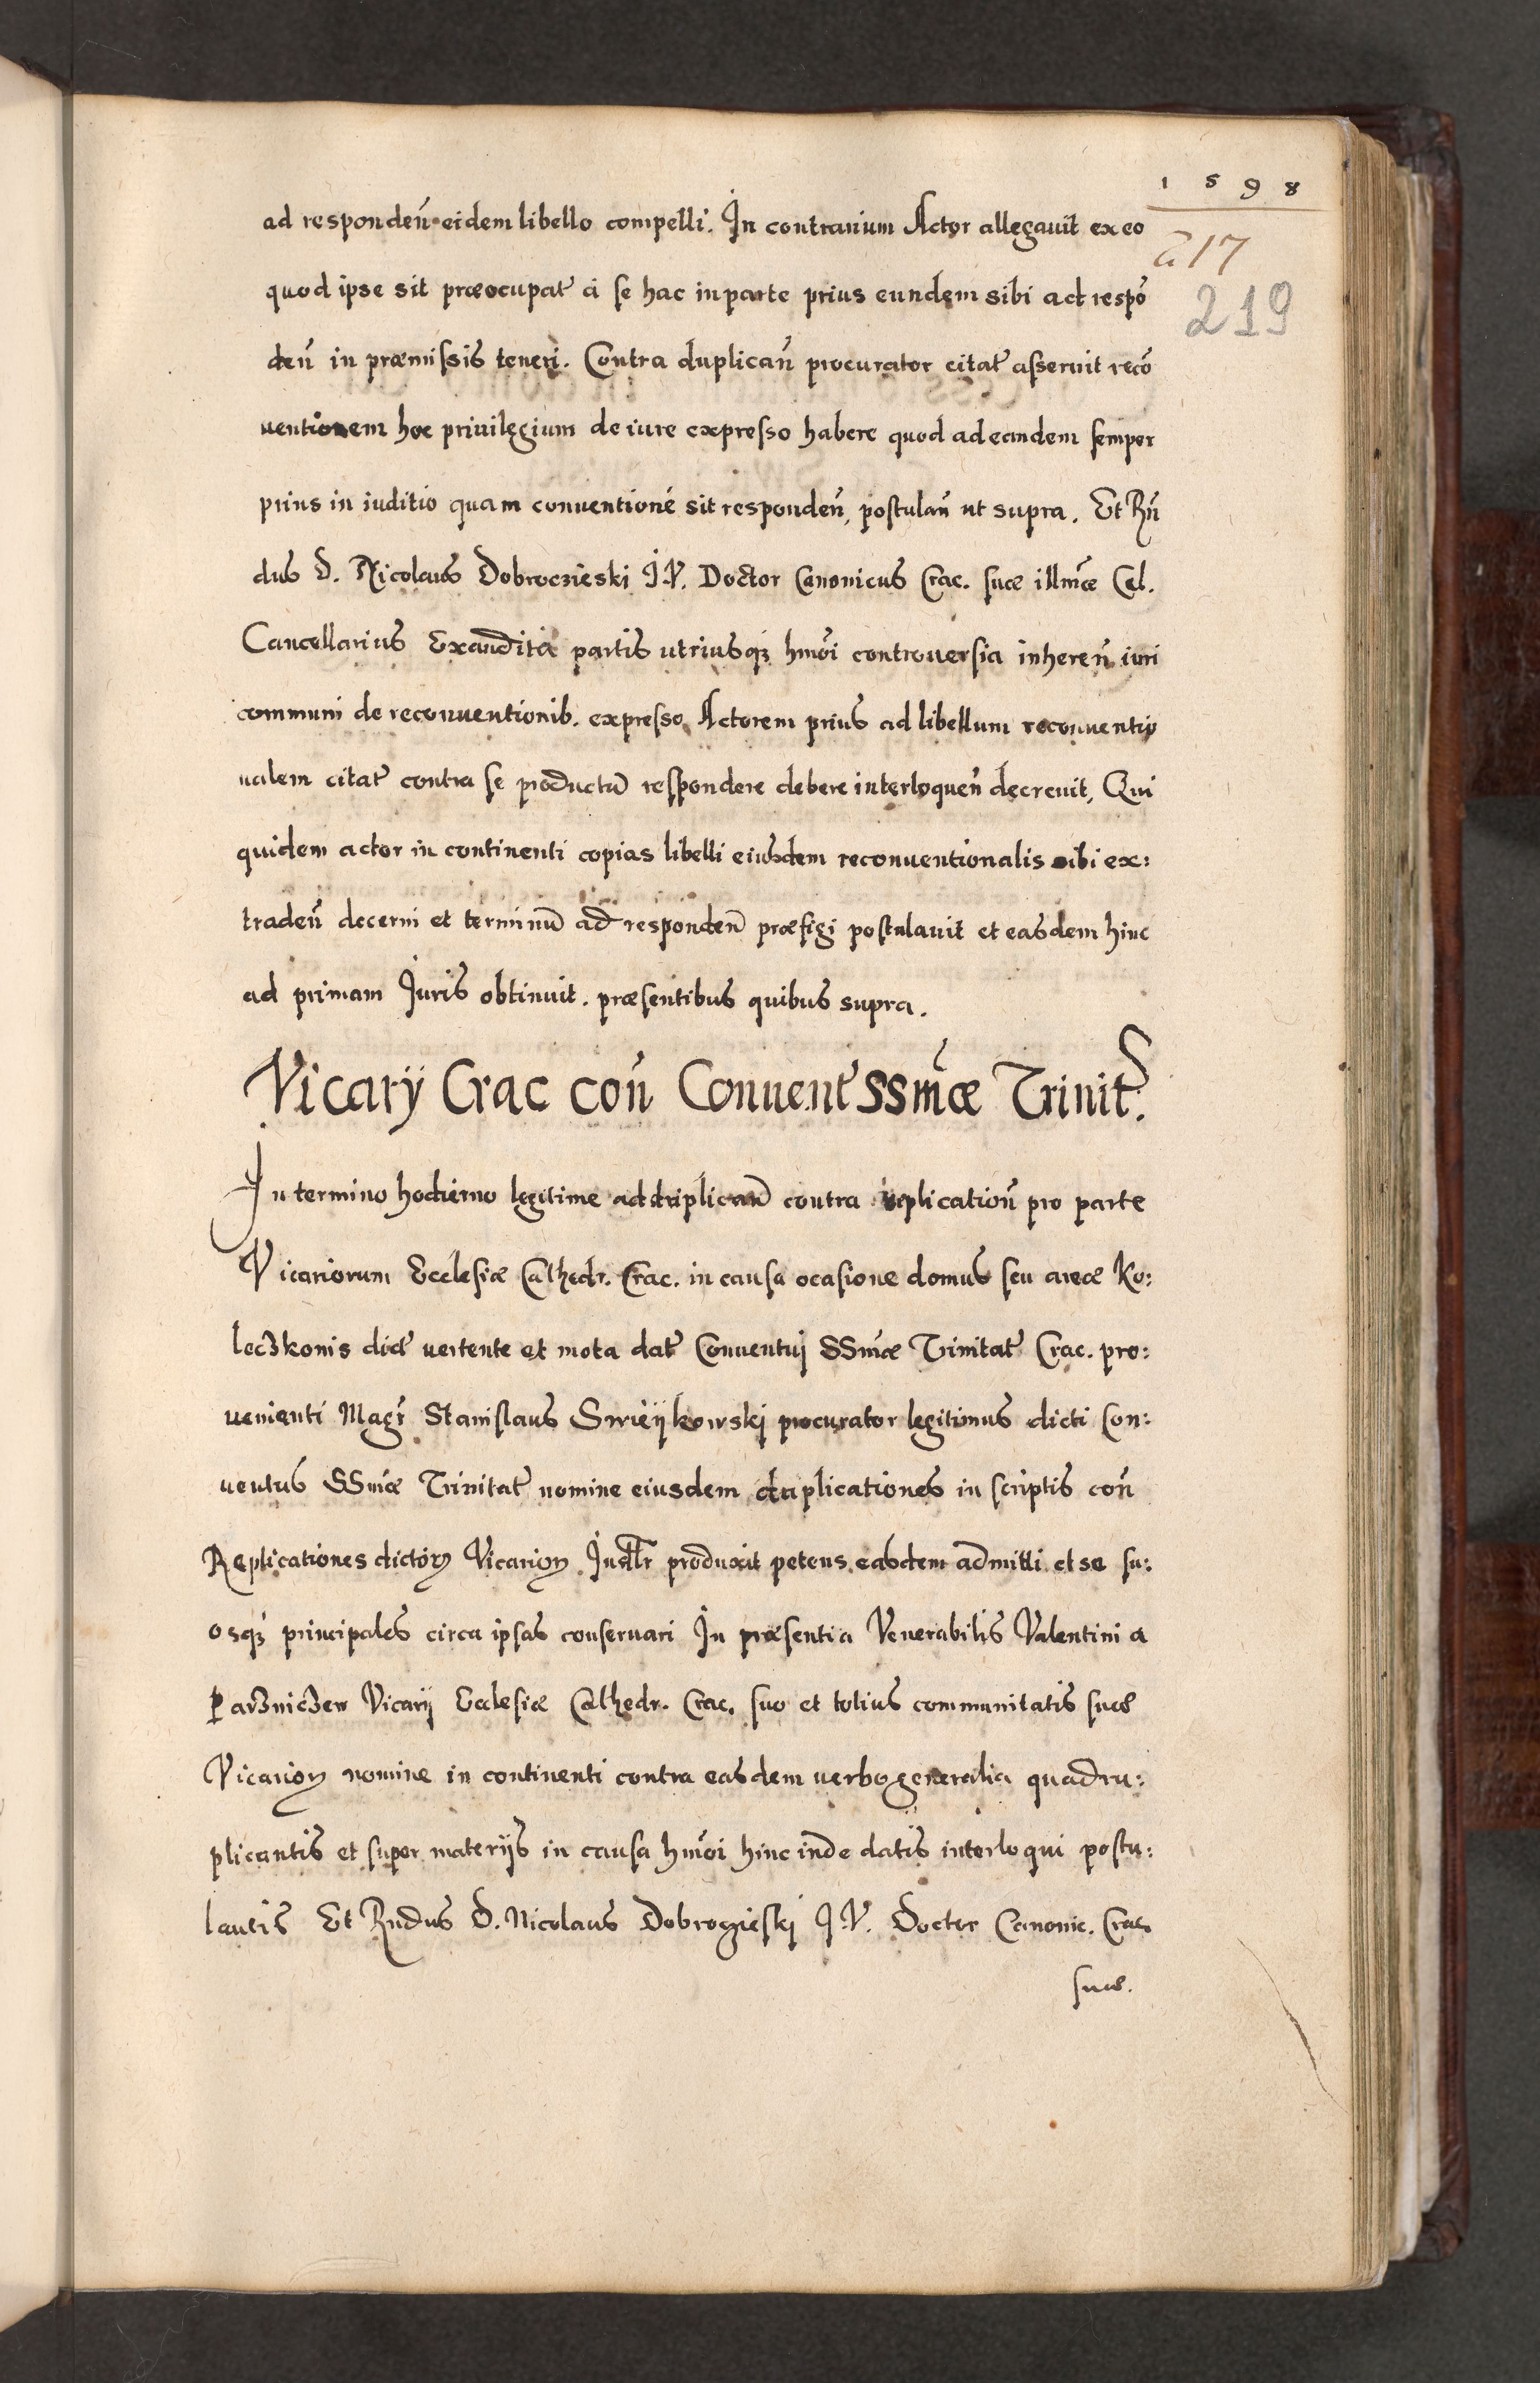 1598
217
219
ad responden̄ eidem libello compelli. In contrarium Actor allegavit ex eo
quod ipse sit præocupat̃ a se hac in parte prius eundem sibi ad respõ
den̄ in præmissis teneri. Contra duplican̄ procurator citat̃ asseruit recõ
uentionem hoc priuilegium de iure expresso habere quod ad eandem semper
prius in iuditio quam conuentionẽ sit responden̄, postulan̄ ut supra. Et Rn̄
dus D. Nicolaus Dobroczieski I.V. Doctor Canonicus Crac. suæ illmæ Cel.
Cancellarius Exaudita partis utriusq₃ hmõi controuersia inheren̄ iuri
communi de reconuentionib. expresso Actorem prius ad libellum reconuentio
nalem citat̃ contra se productũ respondere debere interloquen̄ decreuit, Qui
quidem actor in continenti copias libelli eiusdem reconuentionalis sibi ex:
traden̄ decerni et terminũ ad responden̄ præfigi postulauit et easdem hinc
ad primam Iuris obtinuit. præsentibus quibus supra.
Vicarÿ Crac con̄ Conuent̃ SSmæ Trinit̃.
In termino hodierno legitime ad duplican̄ contra replication̄ pro parte
Vicariorum Ecclesiæ Cathedr. Crac. in causa ocasione domus seu areæ Ko:
leczkonis dict̃ uertente et mota dat̃ Conuentuj SSmæ Trinitat̃ Crac. pro:
uenienti Magr̃ Stanislaus Swieÿkowskj procurator legitimus dicti Con:
uentus SSmæ Trinitat̃ nomine eiusdem duplicationes in scriptis con̄
Replicationes dictorꝝ Vicariorꝝ produxit petens easdem admitti et se su:
osq₃ principales circa ipsas conseruari In præsentia Venerabilis Valentini a
Parzniczew Vicarij Ecclesiæ Cathedr. Crac. suo et totius communitatis suæ
Vicariorꝝ nomine in continenti contra easdem uerbo generalia quadru:
plicantis et super materijs in causa hmõi hinc inde datis interloqui postu:
lantis Et Rndus D. Nicolaus Dobrozieskj I.V. Doctor Canonic. Crac
suæ.